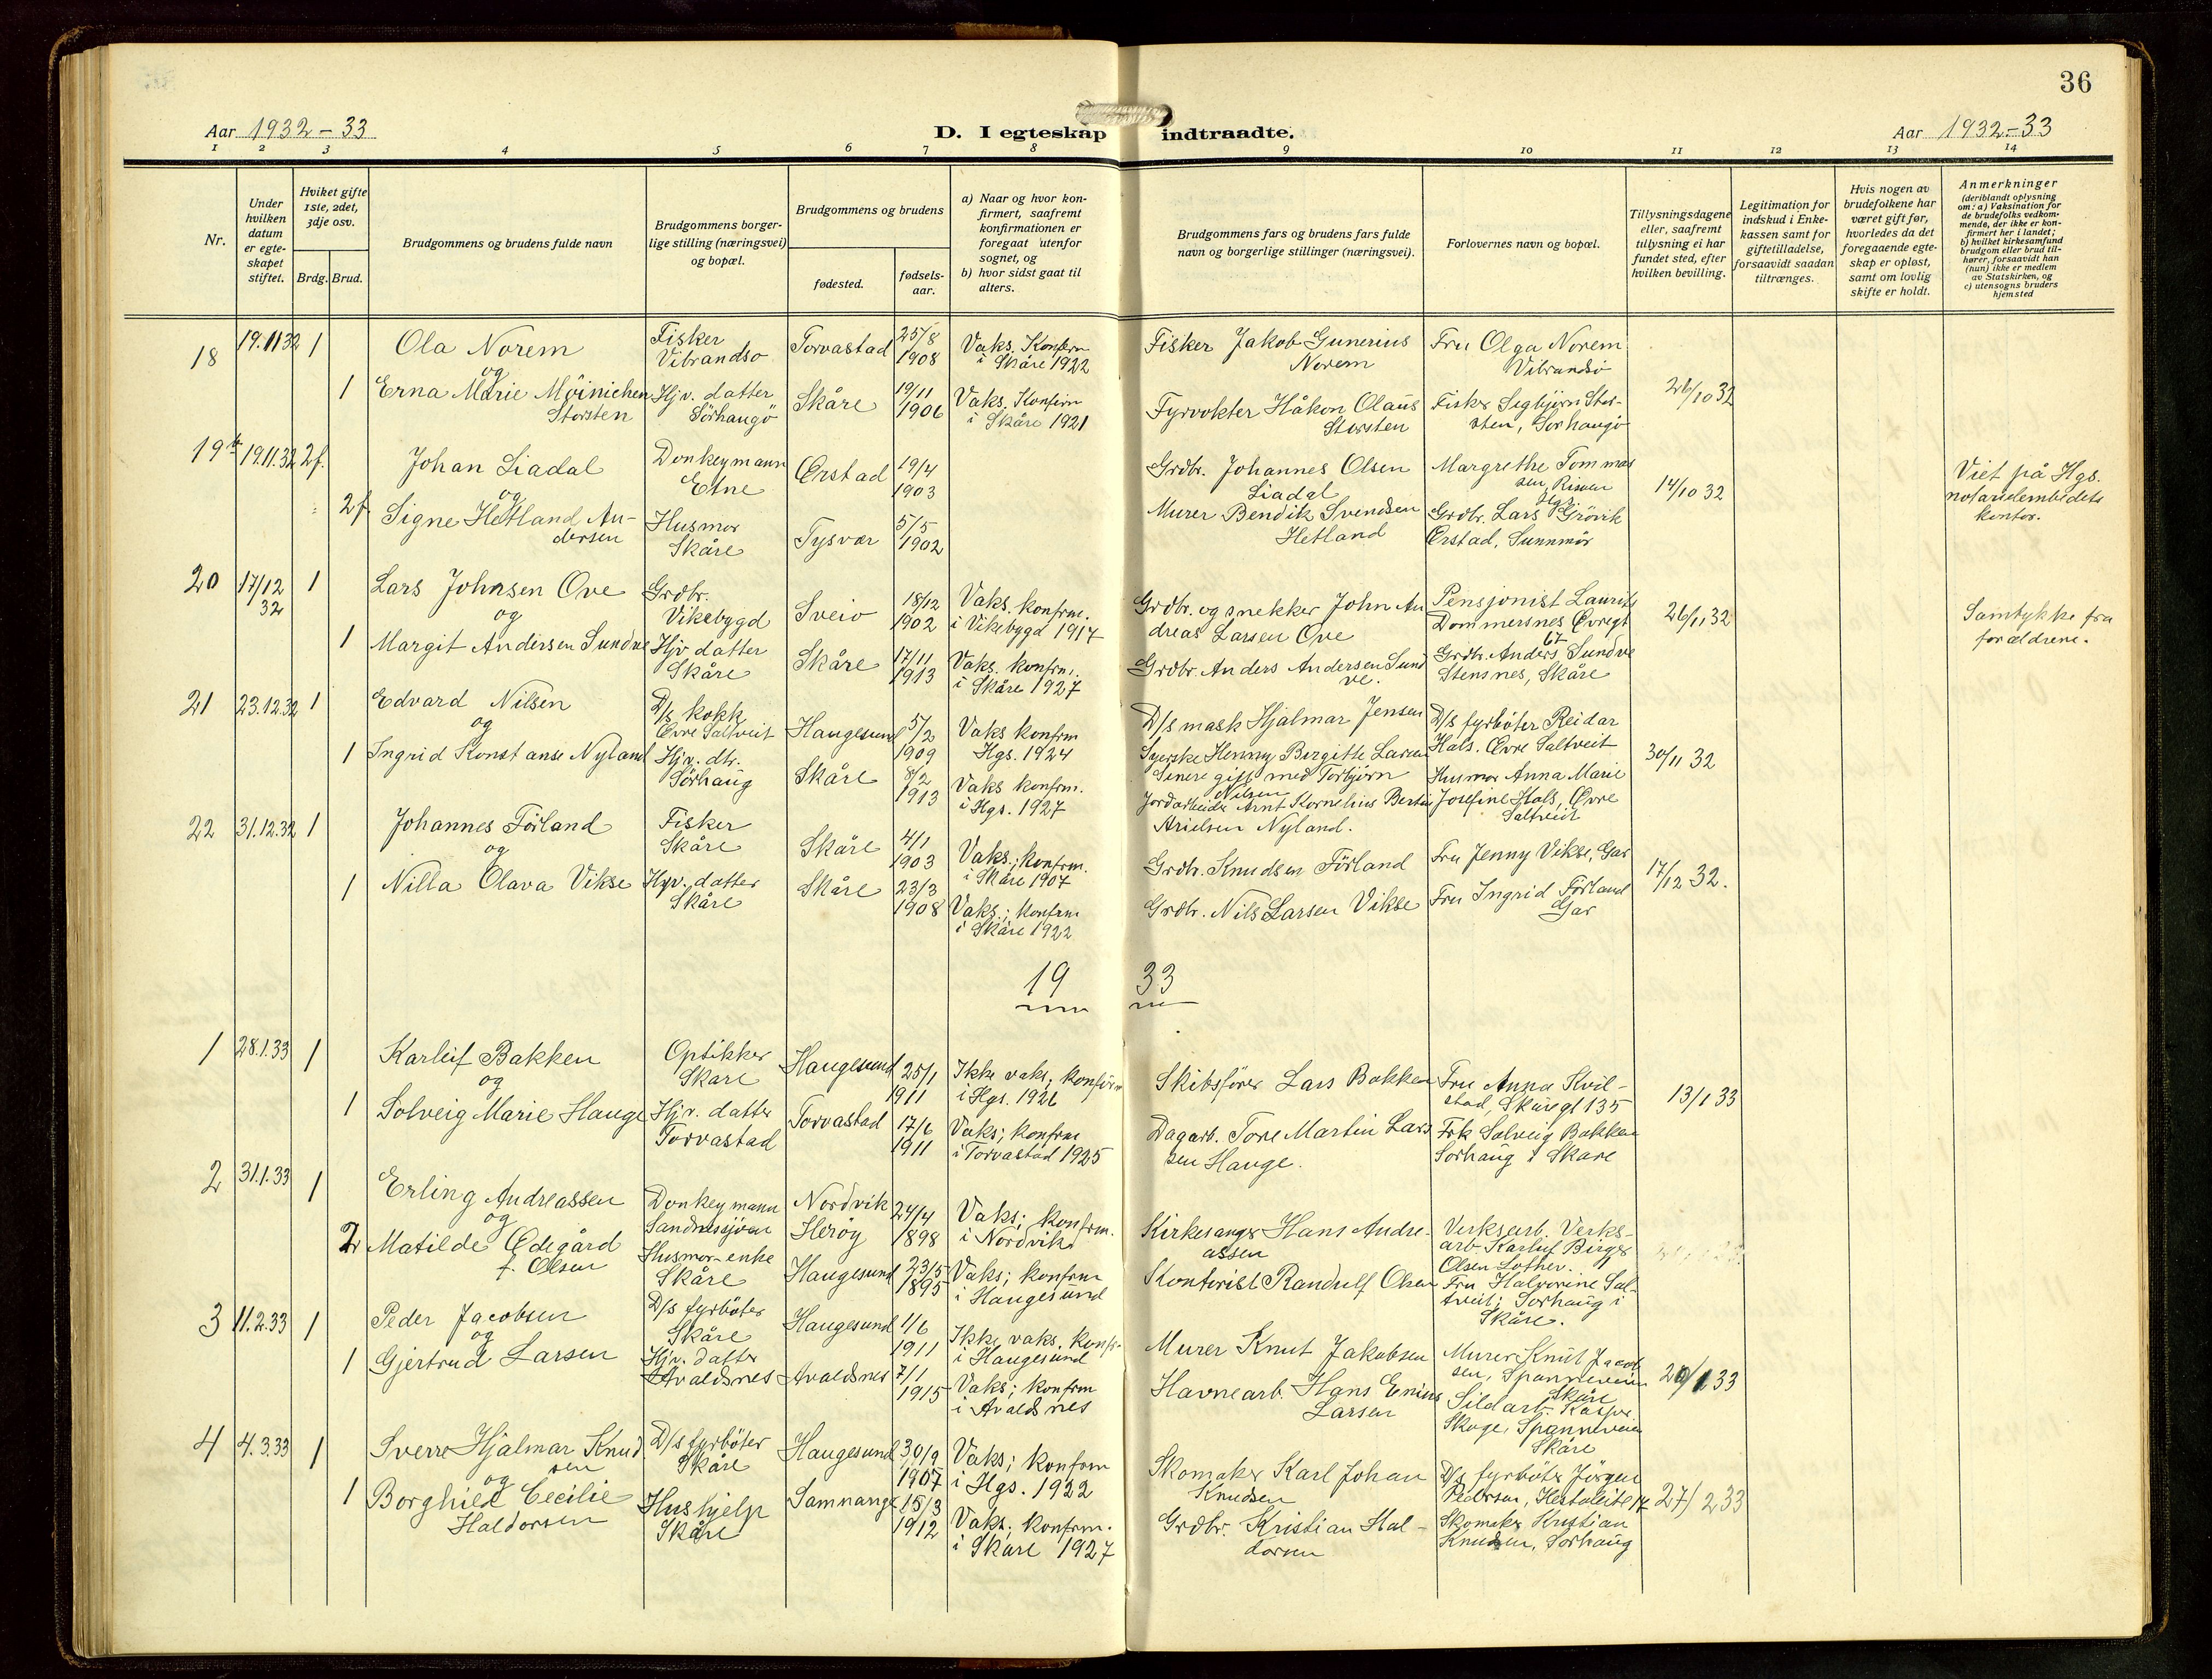 36
Aar 1932-33
D. I egteskap indtraadte.
Aar 1932-33
1 2 3 4 5 6 7 8 9 10 11 12 13 14
Nr.
Under
hvilken
datum
er egte-
skapet
stiftet.
Hvilket gifte
1ste, 2det,
3dje osv.
Brdg. Brud.
Brudgommens og brudens fulde navn
Brudgommens borger-
lige stilling (næringsvei)
og bopæl.
Brudgommens og brudens
fødested.
fødsels-
aar.
a) Naar og hvor kon-
firmert, saafremt
konfirmationen er
foregaat utenfor
sognet, og
b) hvor sidst gaat til
alters.
Brudgommens fars og brudens fars fulde
navn og borgerlige stillinger (næringsvei).
Forlovernes navn og bopæl.
Tillysningsdagene
eller, saafremt
tillysning ei har
fundet sted, efter
hvilken bevilling.
Legitimation for
indskud i Enke-
kassen samt for
giftetilladelse,
forsaavidt saadan
tiltrænges.
Hvis nogen av
brudefolkene har
været gift før,
hvorledes da det
foregaaende egte-
skap er opløst,
samt om lovlig
skifte er holdt.
Anmerkninger
(deriblandt oplysning
om: a) Vaksination for
de brudefolks vedkom-
mende, der ikke er kon-
firmert her i landet;
b) hvilket kirkesamfund
brudgom eller brud til-
hører, forsaavidt han
(hun) ikke er medlem
av Statskirken, og
c) utensogns bruders
hjemsted
18
19.11 32
1
Ola Norem
og
Fisker
Vibrandsø
Torvastad
25/8
1908
Vaks. Konferm
i Skåre 1922
Fisker Jakob Gunerius
Norem
Fru Olga Norem
Vibrandsø
26/10 32
1
Erna Marie Möinichen
Storsten
Hjv. datter
Sörhaugö
Skåre
19/11
1906
Vaks. Konferm
i Skåre 1921
Fyrvokter Håkon Olaus
Storsten
Fisker Sigbjörn Stor-
sten, Sorhaugö
19
19.11.32
2f.
Johan Liadal
og
Donkeymann
Etne
Œrstad
19/4
1903
Grdbr. Johannes Olsen
Liadal
Margrethe Tommas
sen, Risøen
Hgs.
14/10 32
Viet på Hgs.
notarialembedets
kontor.
2f
Signe Hetland An-
dersen
Husmor
Skåre
Tysvær
5/5
1902
Murer Bendik Svendsen
Hetland
Grdbr. Lars Grövik
Œrstad, Sunnmör
20
17/12
32
1
Lars Johnsen Ove
og
Grdbr.
Vikebygd
Sveio
18/12
1902
Vaks. konfrm.
i Vikebygd 1917
Grdbr. og snekker John An
dreas Larsen Ove
Pensjonist Laurits
Dommersnes Øvregt
67
26/11 32
Samtykke fra
forældrene.
1
Margit Andersen Sundve
Hjv datter
Skåre
Skåre
17/11
1913
Vaks. konfrm.
i Skåre 1927
Grdbr. Anders Andersen Sund
ve.
Grdbr. Anders Sundve
Stensnes, Skåre
21
23.12.32
1
Edvard Nilsen
og
D/s kokk
Øvre Saltveit
Haugesund
5/2
1909
Vaks konfrm
Hgs. 1924
D/s mask Hjalmar Jensen
Syerske Henny Birgitte Larsen
Senere gift med Torbjörn
Nilsen
D/s fyrböter Reidar
Hals. Øvre Saltveit
30/11 32
1
Ingrid Konstanse Nyland
Hjv. dtr.
Sörhaug
Skåre
8/2
1913
Vaks konfrm.
i Hgs. 1927
Jordarbeider Arnt Kornelius Bertin
Arielsen Nyland.
Husmor Anna Marie
Josefine Hals, Øvre
Saltveit
22
31.12.32
1
Johannes Förland
og
Fisker
Skåre
Skåre
4/1
1903
Vaks.; konfrm.
i Skåre 1907
Grdbr. Knudsen Förland
Fru Jenny Vikse, Gar
17/12 32.
1
Nilla Olava Vikse
Hjv. datter
Skåre
Skåre
23/3
1908
Vaks.; konfrm
i Skåre 1922
Grdbr. Nils Larsen Vikse
Fru Ingrid Förland
Gar
19 33
1
28.1.33
1
Karleif Bakken
og
Optikker
Skåre
Haugesund
25/1
1911
Ikke vaks; konfirm
i Hgs. 1926
Skibsförer Lars Bakken
Fru Anna Kvil-
stad, Skåregt 135
13/1 33
1
Solveig Marie Hauge
Hjv. datter
Torvastad
Torvastad
17/6
1911
Vaks; konfrm
i Torvastad 1925
Dagarb. Tore Martin Lars
sen Hauge.
Frk Solveig Bakken
Sorhaug i Skåre
2
31.1.33
1
Erling Andreassen
og
Donkeymann
Sandnessjöen
Nordvik
Heröy
24/4
1898
Vaks; konfrm.
i Nordvik
Kirkesanger Hans Andre-
assen
Verksarb. Verks-
arb. Karleif Birger
Olsen Lother.
2
Matilde Œdegård
f. Olsen
Husmor-enke
Skåre
Haugesund
23/5
1895
Vaks; konfrm
i Haugesund
Kontorist Randulf Olsen
Fru Halvorine Sal-
tveit; Sorhaug i
Skåre.
3
11.2.33
1
Peder Jacobsen
og
D/s fyrböter
Skåre
Haugesund
1/6
1911
Ikke vaks. konfr.
i Haugesund
Murer Knut Jakobsen
Murer Knut Jacob
sen, Spanneveien
Skåre
20/1 33
1
Gjertrud Larsen
Hjv. datter
Avaldsnes
Avaldsnes
7/1
1915
Vaks; konfrm
i Avaldsnes
Havnearb. Hans Enius
Larsen
Sildarb. Kasper
Skoge, Spanneveien
Skåre
4
4.3.33
1
Sverre Hjalmar Knud
sen
og
D/s fyrböter
Skåre
Haugesund
30/9
1907
Vaks; konfrm
i Hgs. 1922
Skomaker Karl Johan
Knudsen
D/s fyrböter Jörgen
Pedersen, Hestaleite 14
27/2 33
1
Borghild Cecilie
Haldorsen
Hushjelp
Skåre
Samnanger
15/3
1912
Vaks; konfrm.
i Skåre 1927
Grdbr. Kristian Hal-
dorsen
Skomaker Kristian
Knudsen, Sorhaug